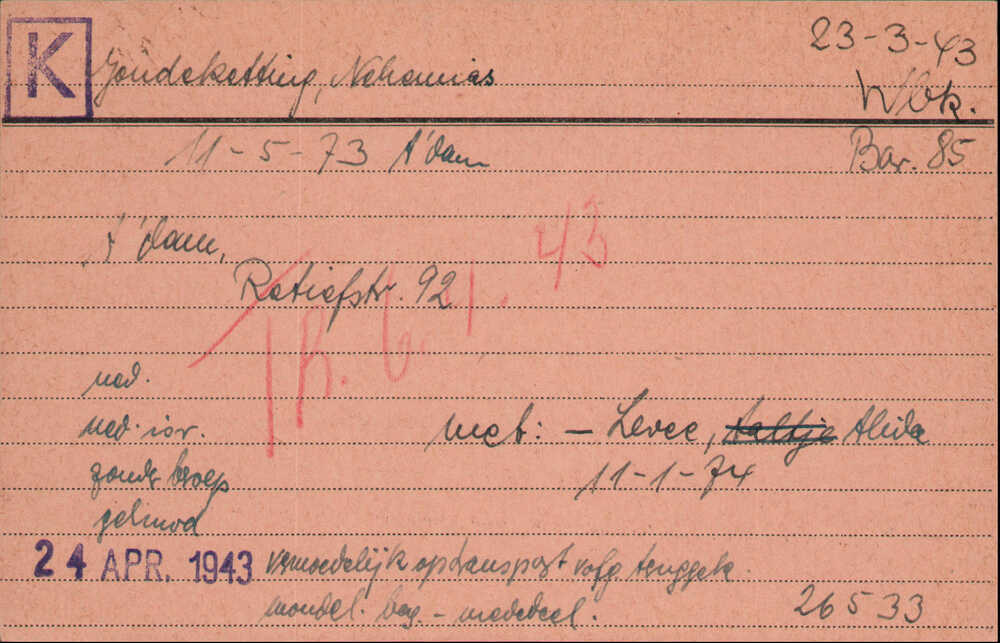 K
Goudeketting, Nehemias
23-3-43
Wbk.
11-5-73 A'dam
Bar. 85
A'dam,
Retiefstr. 92
TR. 6. 4. 43
ned.
ned. isr.
met: - Levee, Aaltje Alida
zonder beroep
11-1-74
gehuwd
24 APR. 1943 vermoedelijk op transport volg teruggek.
mondel. mededeel.
26533